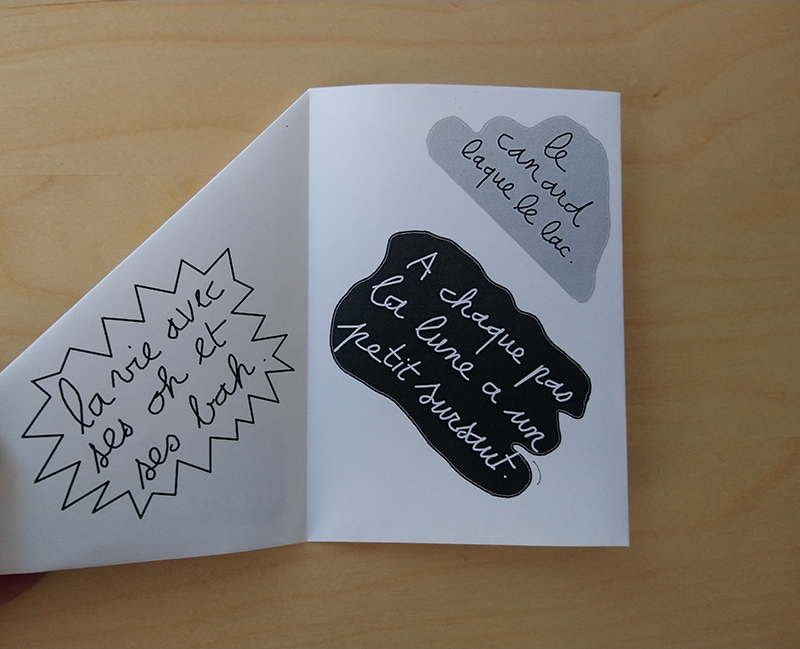 la vie avec
ses oh et
ses bah.
le
canard
laque le lac.
A chaque pas
la lune a un
petit sursaut.